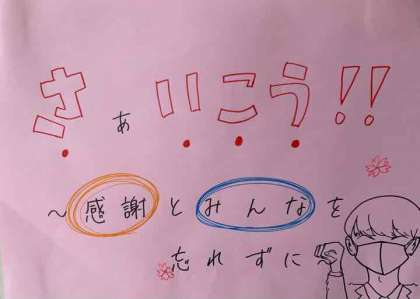 さぁいこう!!
〜感謝とみんなを
忘れずに〜